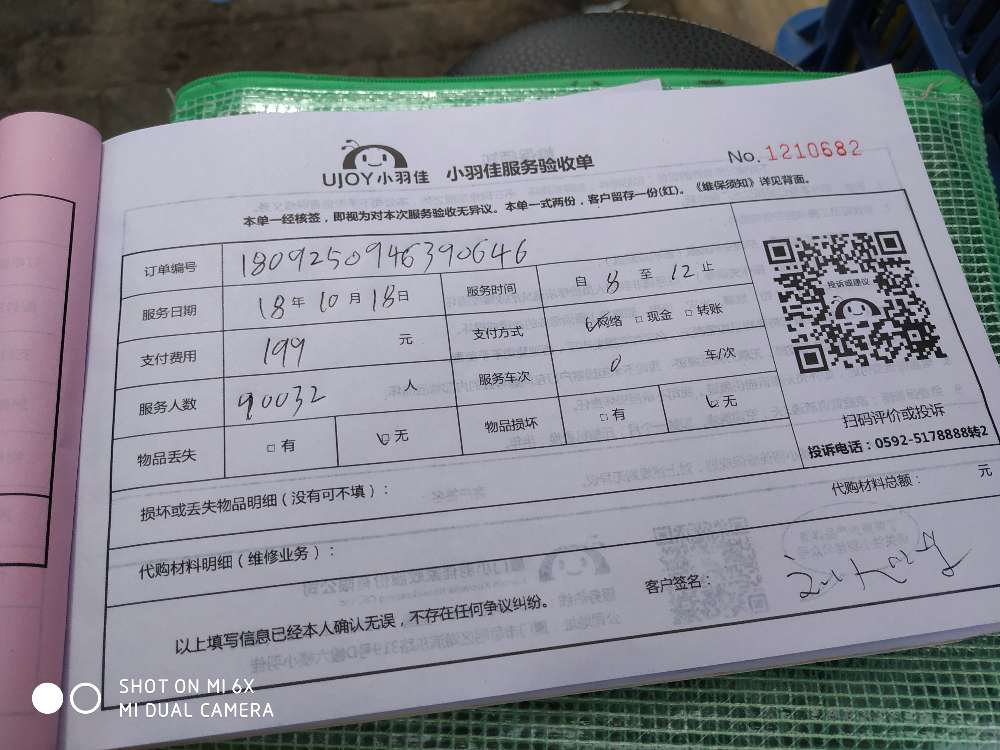 UJOY小羽佳 小羽佳服务验收单 No. 1210682
本单一经核签，即视为对本次服务验收无异议。本单一式两份，客户留存一份(红)。《维保须知》详见背面。
订单编号 1809250946390646
服务日期 18年10月18日 服务时间 自 8 至 12 止
支付费用 199 元 支付方式 网络 □现金 □转账
服务人数 90032 人 服务车次 0 车/次
物品丢失 □有 无 物品损坏 □有 无
投诉或建议
扫码评价或投诉
投诉电话：0592-5178888转2
损坏或丢失物品明细（没有可不填）：
代购材料明细（维修业务）： 代购材料总额： 元
以上填写信息已经本人确认无误，不存在任何争议纠纷。 客户签名：
SHOT ON MI 6X
MI DUAL CAMERA